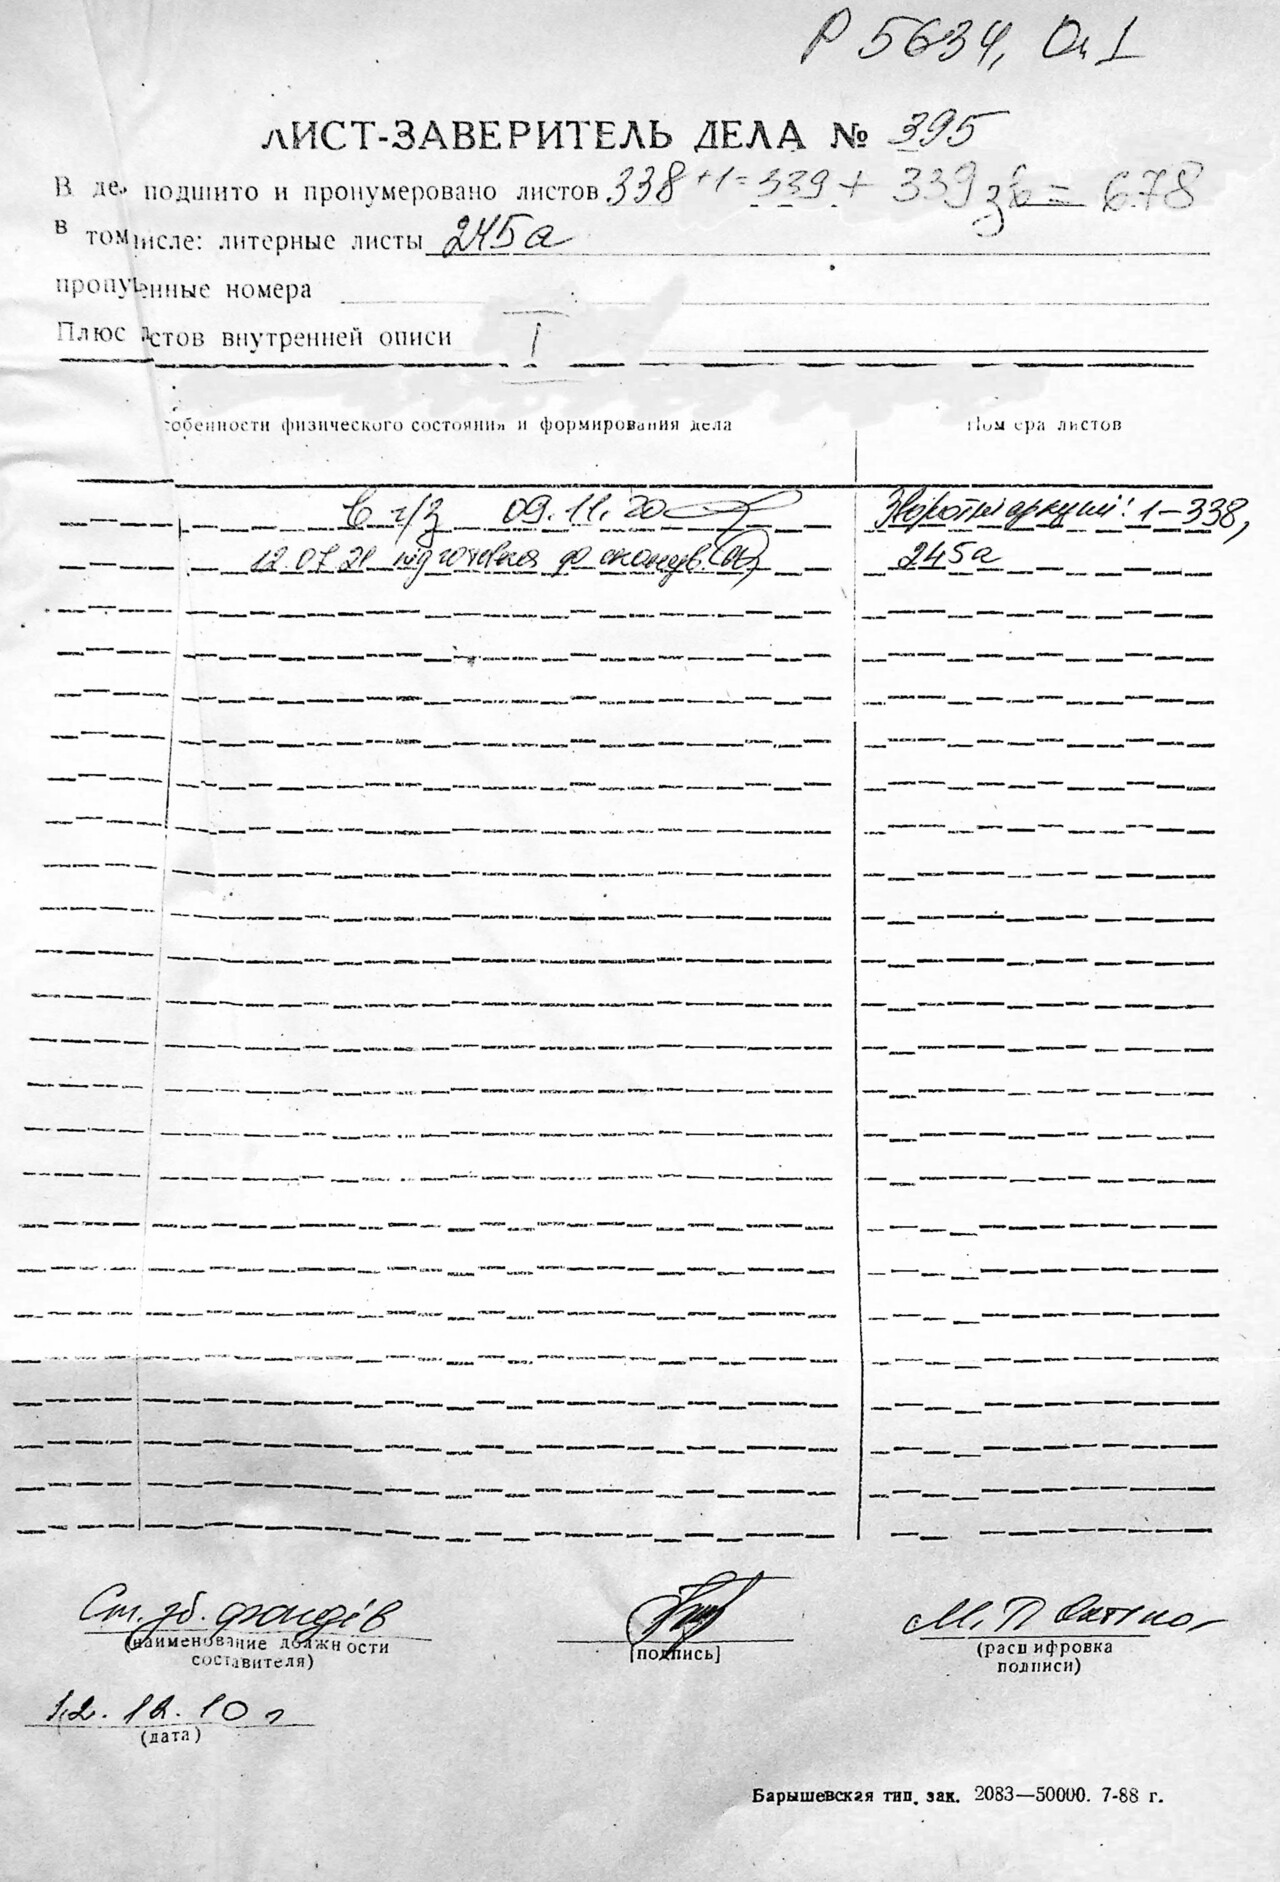 Р 5634, Оп 1
ЛИСТ-ЗАВЕРИТЕЛЬ ДЕЛА № 395
В де. подшито и пронумеровано листов 338 +1= 339 + 339 зв = 678
в том числе: литерные листы 245а
пропущенные номера
Плюс листов внутренней описи 1
собенности физического состояния и формирования дела
Номера листов
в г/з 09.11.20
Зворотні аркуші: 1–338,
12.07.21 підготовка до сканув.
245а
Ст. зб. фондів
М. П.
(наименование должности
составителя)
[подпись]
(расшифровка
подписи)
12. 12. 10 г
(дата)
Барышевская тип. зак. 2083—50000. 7-88 г.